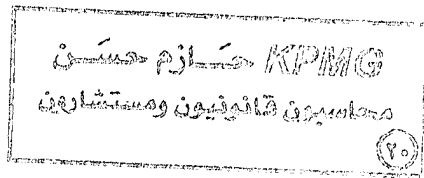 KPMG حازم حسن
محاسبون قانونيون ومستشارون
٢٠